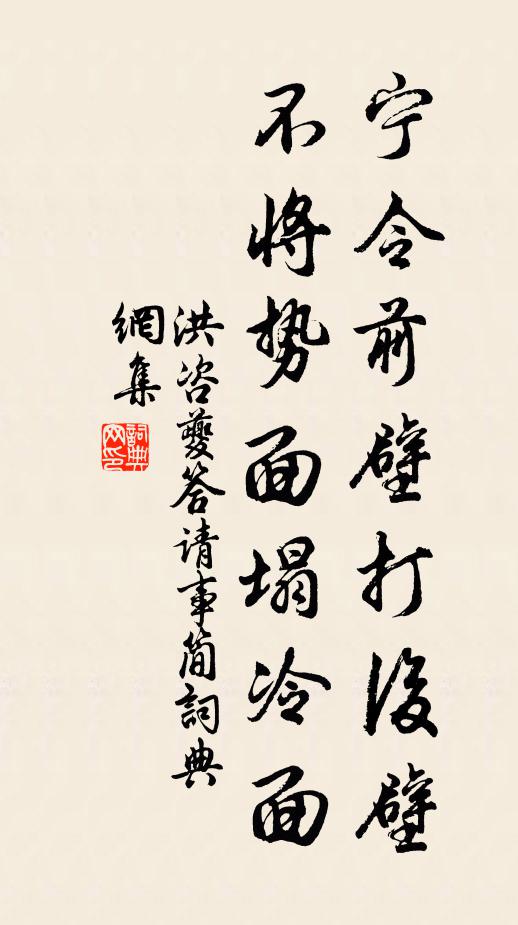 宁令前壁打後壁
不将势面塌冷面
洪咨夔答请事简詞典
網集
詞典網印